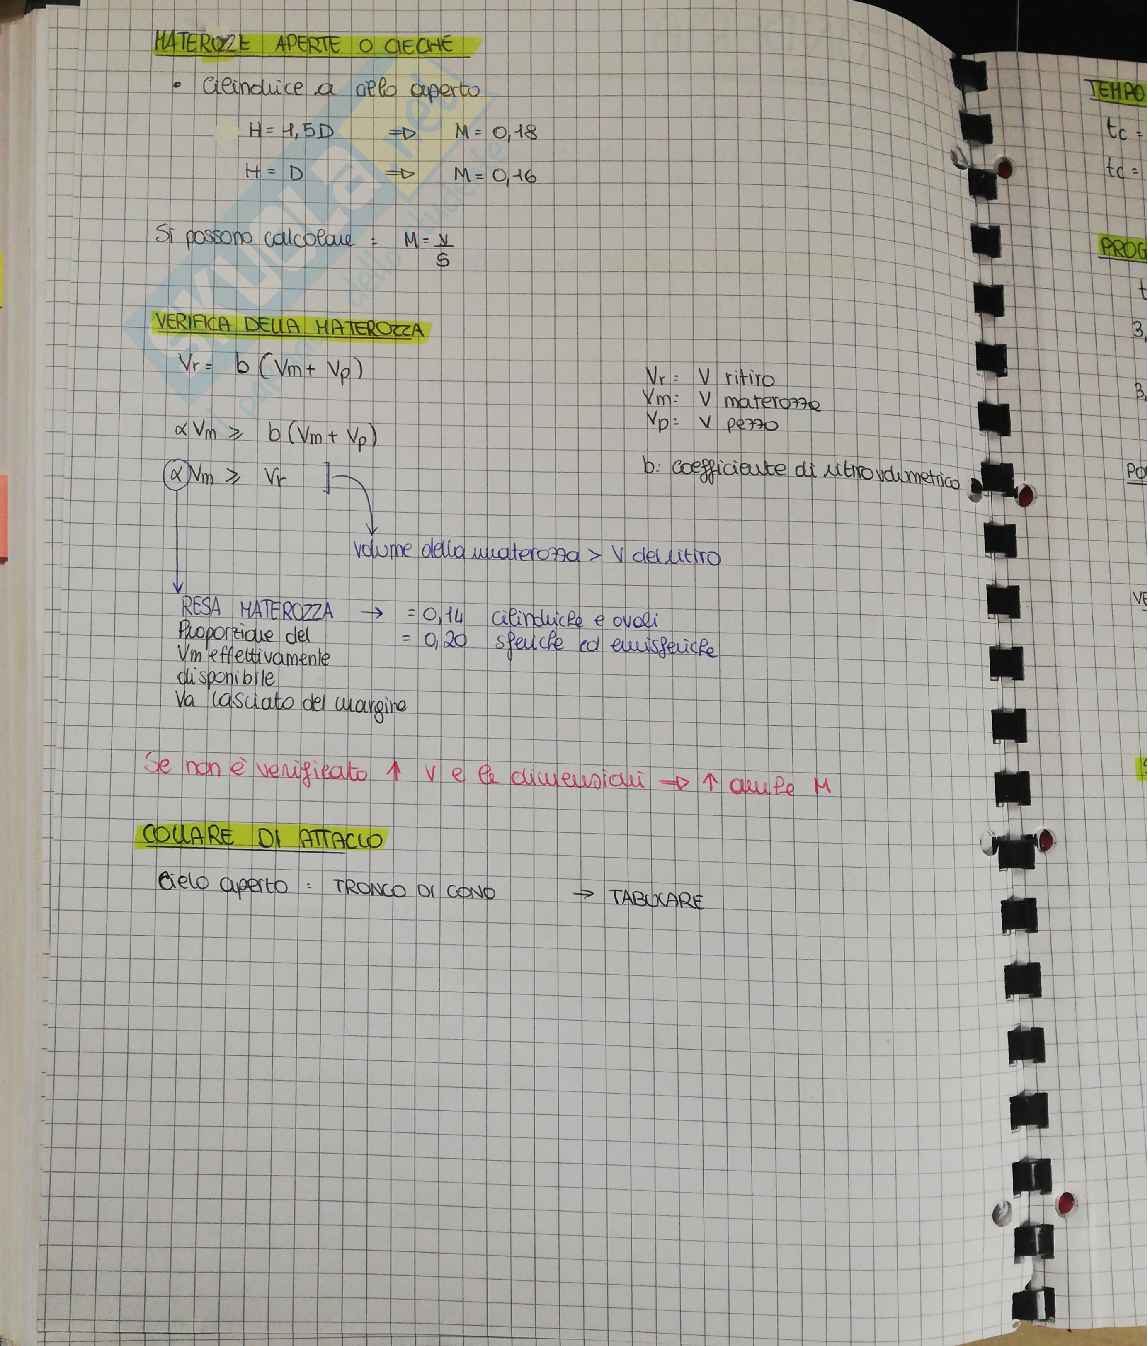 MATEROZZE APERTE O CIECHE
• Cilindrice a cielo aperto
H = 1,5D ⇒ M = 0,18
H = D ⇒ M = 0,16
Si possono calcolare : M = V/S
VERIFICA DELLA MATEROZZA
Vr = b (Vm + Vp)
αVm ≥ b(Vm + Vp)
αVm ≥ Vr
Vr = V ritiro
Vm: V materozze
Vp: V pezzo
b: coefficiente di ritiro volumetrico
volume della materozza > V del ritiro
RESA MATEROZZA → = 0,14 cilindriche e ovali
Proporzione del = 0,20 sferiche ed emisferiche
Vm effettivamente
disponibile
Va lasciato del margine
Se non è verificato ↑ V e le dimensioni → ↑ anche M
COLLARE DI ATTACCO
Cielo aperto : TRONCO DI CONO → TABULARE
SKUOLA.net
TEMPO
tc =
tc =
PROG
3,
3,
PO
VE